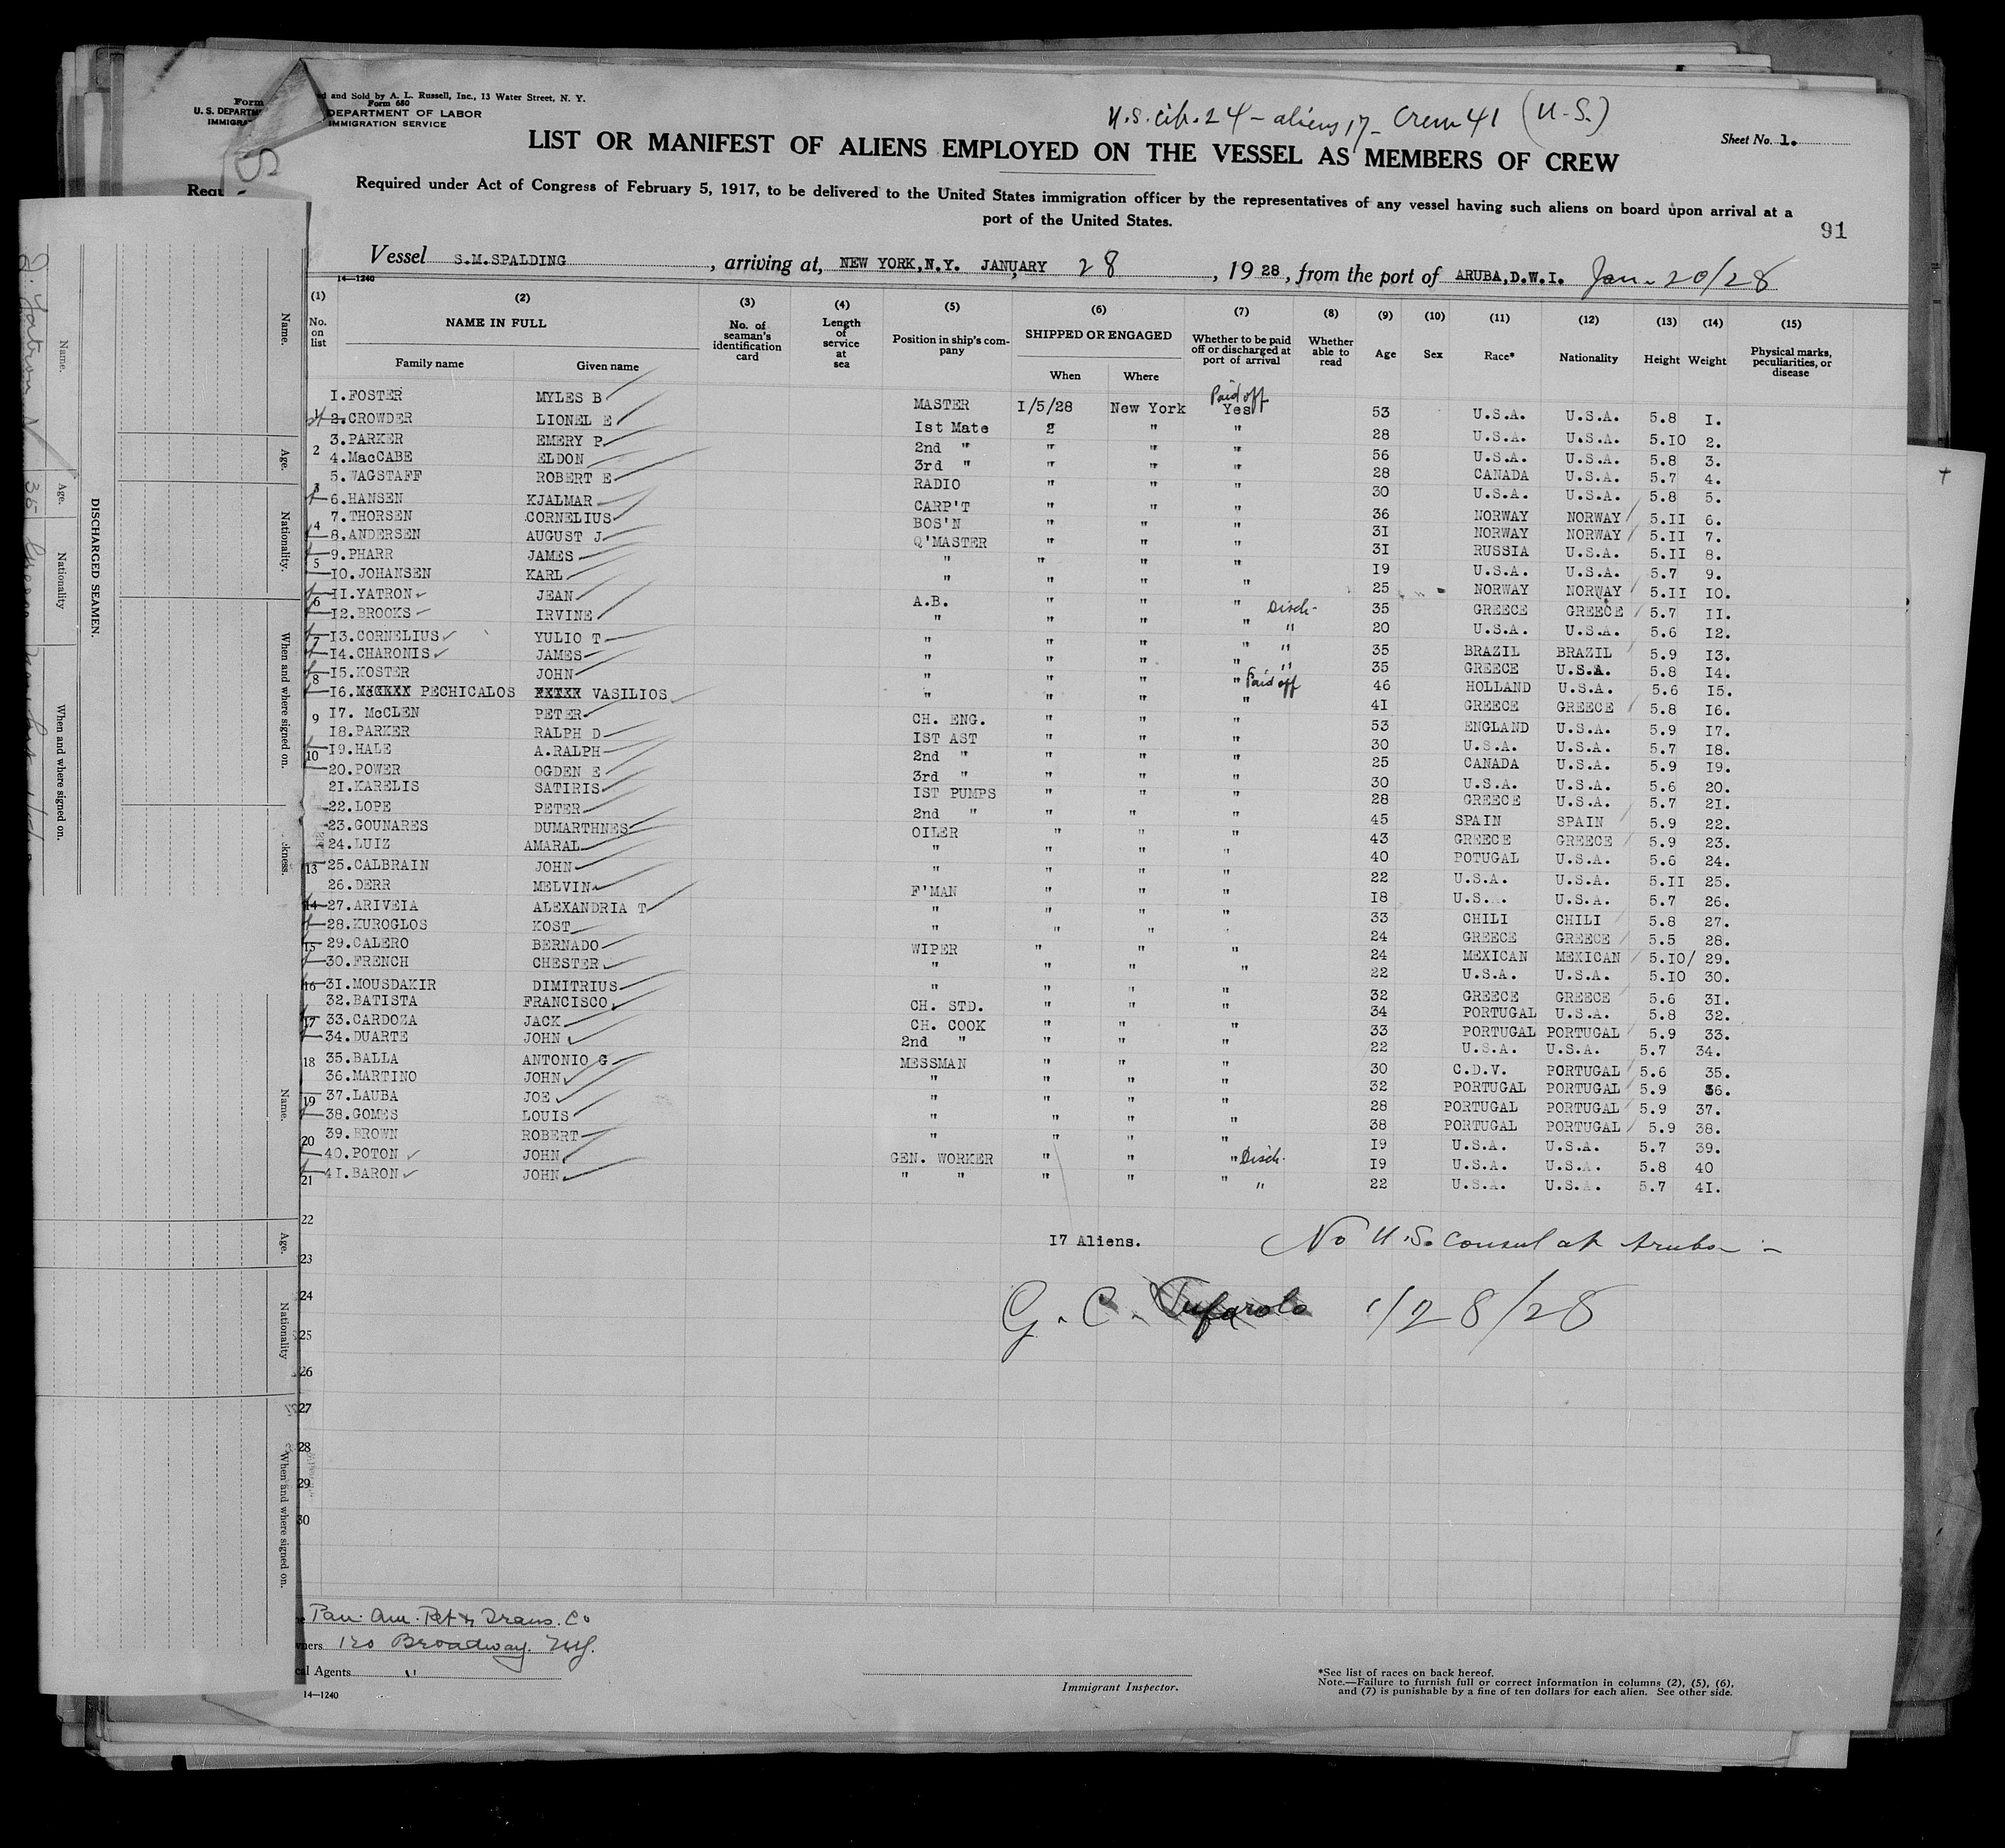 Form
U. S. DEPARTM
IMMIGRA
and Sold by A. L. Russell, Inc., 13 Water Street, N. Y.
Form 680
DEPARTMENT OF LABOR
IMMIGRATION SERVICE
U.S. cit. 24 - aliens 17 - Crew 41 (U-S.)
Sheet No. 1.
LIST OR MANIFEST OF ALIENS EMPLOYED ON THE VESSEL AS MEMBERS OF CREW
Required under Act of Congress of February 5, 1917, to be delivered to the United States immigration officer by the representatives of any vessel having such aliens on board upon arrival at a
port of the United States.
91
Vessel S.M.SPALDING, arriving at, NEW YORK,N.Y. JANUARY 28, 1928, from the port of ARUBA,D.W.I. Jan. 20/28
14—1240
(1) (2) (3) (4) (5) (6) (7) (8) (9) (10) (11) (12) (13) (14) (15)
No. on list NAME IN FULL Family name Given name No. of seaman's identification card Length of service at sea Position in ship's company SHIPPED OR ENGAGED When Where Whether to be paid off or discharged at port of arrival Whether able to read Age Sex Race* Nationality Height Weight Physical marks, peculiarities, or disease
Paid off
I.FOSTER MYLES B MASTER I/5/28 New York Yes 53 U.S.A. U.S.A. 5.8 I.
2.CROWDER LIONEL E Ist Mate " " " 28 U.S.A. U.S.A. 5.IO 2.
3.PARKER EMERY P 2nd " " " " 56 U.S.A. U.S.A. 5.8 3.
4.MacCABE ELDON 3rd " " " " 28 CANADA U.S.A. 5.7 4.
5.WAGSTAFF ROBERT E RADIO " " " 30 U.S.A. U.S.A. 5.8 5.
6.HANSEN KJALMAR CARP'T " " " 36 NORWAY NORWAY 5.II 6.
7.THORSEN CORNELIUS BOS'N " " " 31 NORWAY NORWAY 5.II 7.
8.ANDERSEN AUGUST J Q'MASTER " " " 31 RUSSIA U.S.A. 5.II 8.
9.PHARR JAMES " " " " I9 U.S.A. U.S.A. 5.7 9.
IO.JOHANSEN KARL " " " " 25 NORWAY NORWAY 5.II IO.
II.YATRON JEAN A.B. " " " Disch- 35 GREECE GREECE 5.7 II.
I2.BROOKS IRVINE " " " " " 20 U.S.A. U.S.A. 5.6 I2.
I3.CORNELIUS YULIO T " " " " " 35 BRAZIL BRAZIL 5.9 I3.
I4.CHARONIS JAMES " " " " " 35 GREECE U.S.A. 5.8 I4.
I5.KOSTER JOHN " " " " Paid off 46 HOLLAND U.S.A. 5.6 I5.
I6. PECHICALOS VASILIOS " " " " 4I GREECE GREECE 5.8 I6.
I7. McCLEN PETER CH. ENG. " " " 53 ENGLAND U.S.A. 5.9 I7.
I8.PARKER RALPH D IST AST " " " 30 U.S.A. U.S.A. 5.7 I8.
I9.HALE A.RALPH 2nd " " " " 25 CANADA U.S.A. 5.9 I9.
20.POWER OGDEN E 3rd " " " " 30 U.S.A. U.S.A. 5.6 20.
2I.KARELIS SATIRIS IST PUMPS " " " 28 GREECE U.S.A. 5.7 2I.
22.LOPE PETER 2nd " " " " 45 SPAIN SPAIN 5.9 22.
23.GOUNARES DUMARTHNES OILER " " " 43 GREECE GREECE 5.9 23.
24.LUIZ AMARAL " " " " 40 POTUGAL U.S.A. 5.6 24.
25.CALBRAIN JOHN " " " " 22 U.S.A. U.S.A. 5.II 25.
26.DERR MELVIN F'MAN " " " I8 U.S. . U.S.A. 5.7 26.
27.ARIVEIA ALEXANDRIA T " " " " 33 CHILI CHILI 5.8 27.
28.KUROGLOS KOST " " " " 24 GREECE GREECE 5.5 28.
29.CALERO BERNADO WIPER " " " 24 MEXICAN MEXICAN 5.IO/ 29.
30.FRENCH CHESTER " " " " 22 U.S.A. U.S.A. 5.IO 30.
3I.MOUSDAKIR DIMITRIUS " " " " 32 GREECE GREECE 5.6 3I.
32.BATISTA FRANCISCO CH. STD. " " " 34 PORTUGAL U.S.A. 5.8 32.
33.CARDOZA JACK CH. COOK " " " 33 PORTUGAL PORTUGAL 5.9 33.
34.DUARTE JOHN 2nd " " " " 22 U.S.A. U.S.A. 5.7 34.
35.BALLA ANTONIO G MESSMAN " " " 30 C.D.V. PORTUGAL 5.6 35.
36.MARTINO JOHN " " " " 32 PORTUGAL PORTUGAL 5.9 36.
37.LAUBA JOE " " " " 28 PORTUGAL PORTUGAL 5.9 37.
38.GOMES LOUIS " " " " 38 PORTUGAL PORTUGAL 5.9 38.
39.BROWN ROBERT " " " " I9 U.S.A. U.S.A. 5.7 39.
40.POTON JOHN GEN. WORKER " " " Disch. I9 U.S.A. U.S.A. 5.8 40
4I.BARON JOHN " " " " " " 22 U.S.A. U.S.A. 5.7 4I.
22
23
24
25
26
27
28
29
30
I7 Aliens.
No U.S. Consul at Aruba -
G. C. Tufarolo 1/28/28
Pan. Am. Pet & Trans. Co
ners 120 Broadway. NY.
cal Agents "
14—1240
Immigrant Inspector.
*See list of races on back hereof.
Note.—Failure to furnish full or correct information in columns (2), (5), (6),
and (7) is punishable by a fine of ten dollars for each alien. See other side.
DISCHARGED SEAMEN.
Name. Age. Nationality When and where signed on.
Name. Age. Nationality. When and where signed on.
Name. Age. Nationality When and where signed on.
J. Yatron 35 Greece